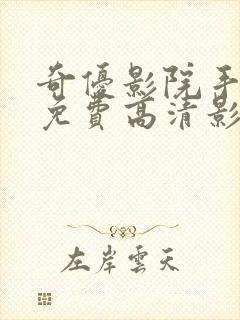 奇優影院手
免費高清影
左岸雲天